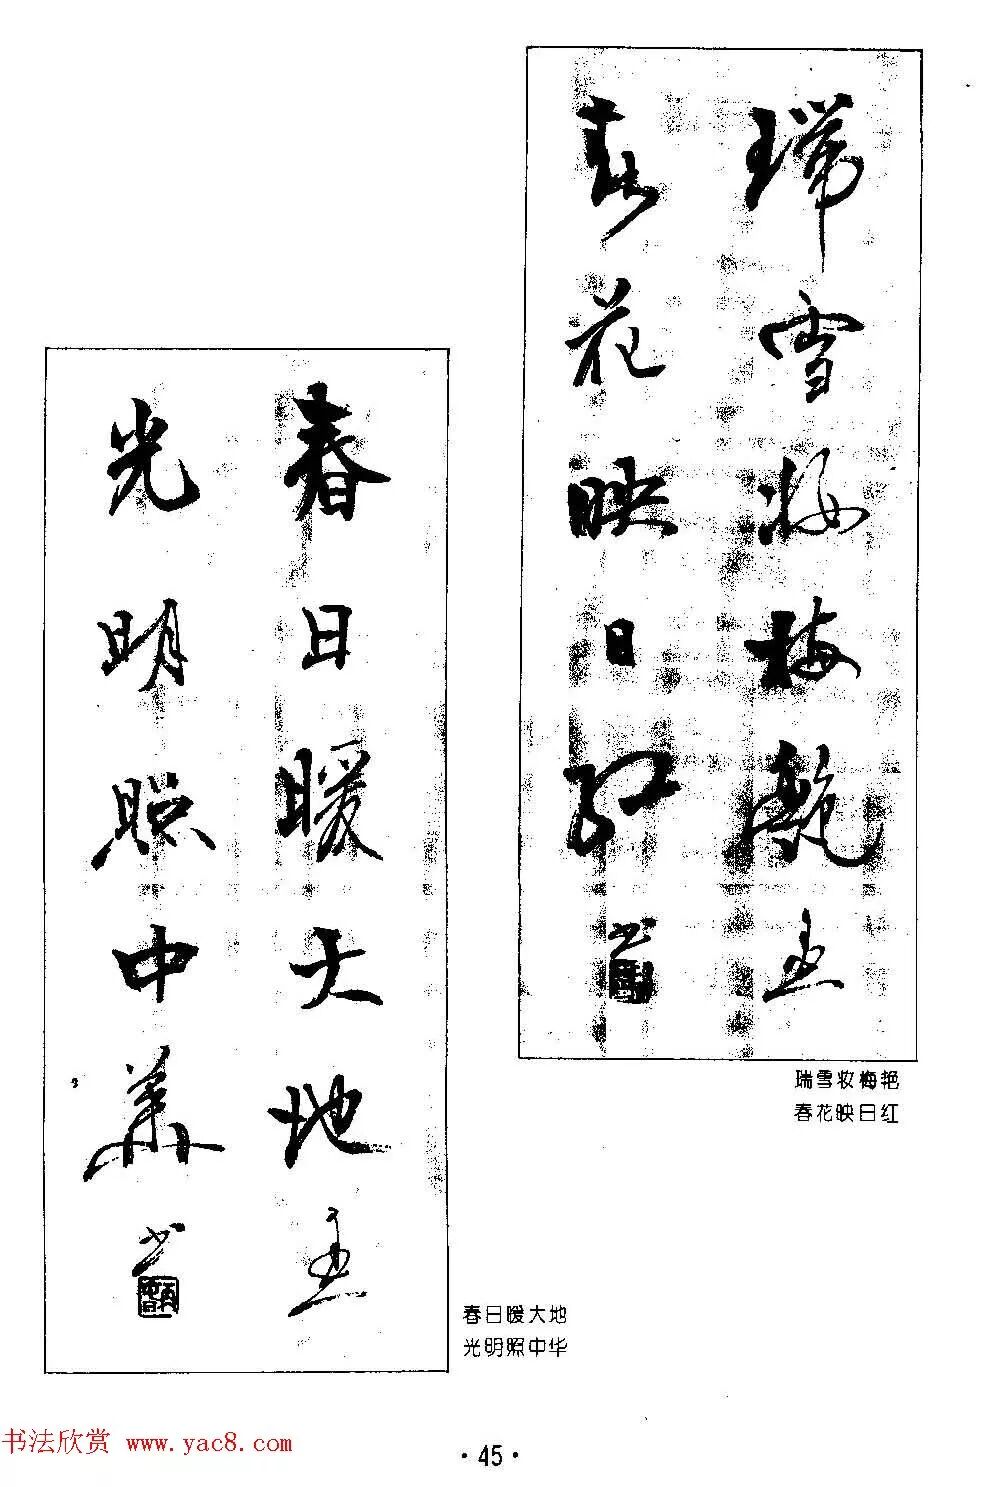 瑞雪妆梅艳
春花映日红
书
瑞雪妆梅艳
春花映日红
春日暖大地
光明照中华
书
春日暖大地
光明照中华
书法欣赏 www.yac8.com
·45·